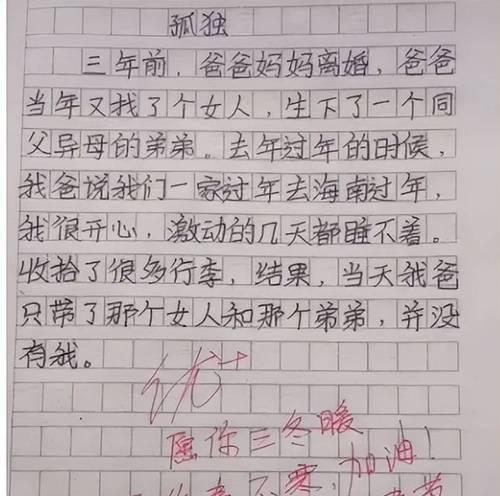 孤独
三年前，爸爸妈妈离婚，爸爸
当年又找了个女人，生下了一个同
父异母的弟弟。去年过年的时候，
我爸说我们一家过年去海南过年，
我很开心，激动的几天都睡不着。
收拾了很多行李，结果，当天我爸
只带了那个女人和那个弟弟，并没
有我。
优++
愿你三冬暖
不寒，加油！